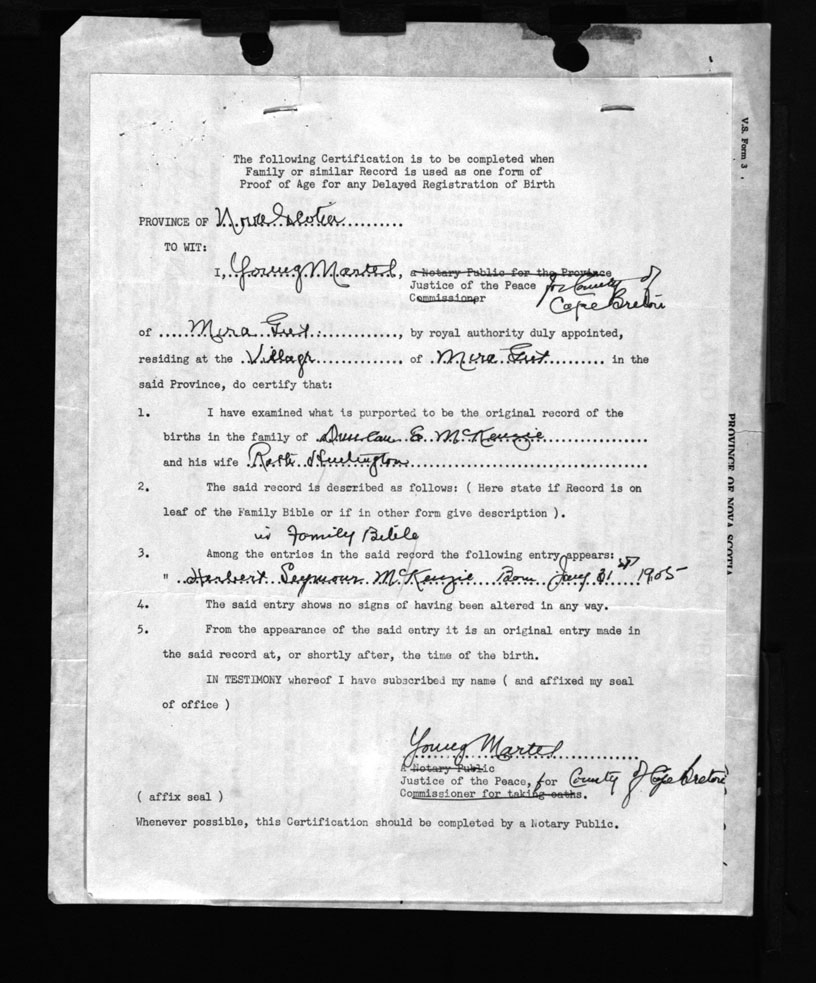 V.S. Form 3
The following Certification is to be completed when
Family or similar Record is used as one form of
Proof of Age for any Delayed Registration of Birth
PROVINCE OF Nova Scotia
TO WIT:
I, Young Martel, a Notary Public for the Province
Justice of the Peace for County of
Commissioner Cape Breton
of Mira Gut, by royal authority duly appointed,
residing at the Village of Mira Gut in the
said Province, do certify that:
1. I have examined what is purported to be the original record of the
births in the family of Duncan E. McKenzie
and his wife Huntington
2. The said record is described as follows: ( Here state if Record is on
leaf of the Family Bible or if in other form give description ).
in Family Bible
3. Among the entries in the said record the following entry appears:
" Harbert Seymour McKenzie Born Jany 31st 1905
4. The said entry shows no signs of having been altered in any way.
5. From the appearance of the said entry it is an original entry made in
the said record at, or shortly after, the time of the birth.
IN TESTIMONY whereof I have subscribed my name ( and affixed my seal
of office )
Young Martel
A Notary Public
Justice of the Peace, for County of Cape Breton
( affix seal ) Commissioner for taking oaths.
Whenever possible, this Certification should be completed by a Notary Public.
PROVINCE OF NOVA SCOTIA